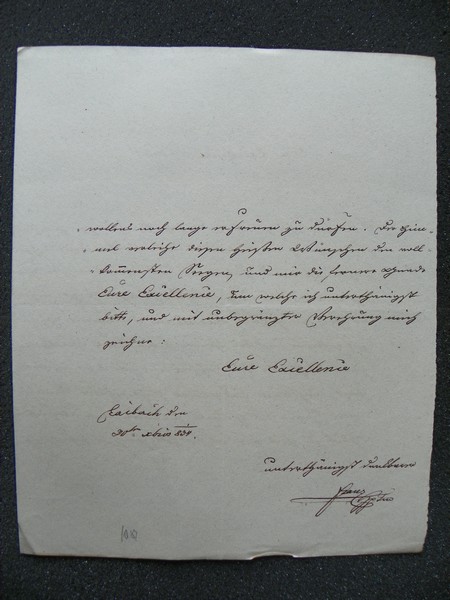 wollens noch lange erfreuen zu dürfen. Der Him-
mel verleihe diesen heißen Wünschen den voll-
kommensten Segen, und mir die fernere Gnade
Eure Excellenie, um welche ich unterthänigst
bitte, und mit unbegränzter Verehrung mich
zeichne:
Eure Excellenie
Laibach den
30ten xbris 834.
unterthänigst dankbarer
Franz